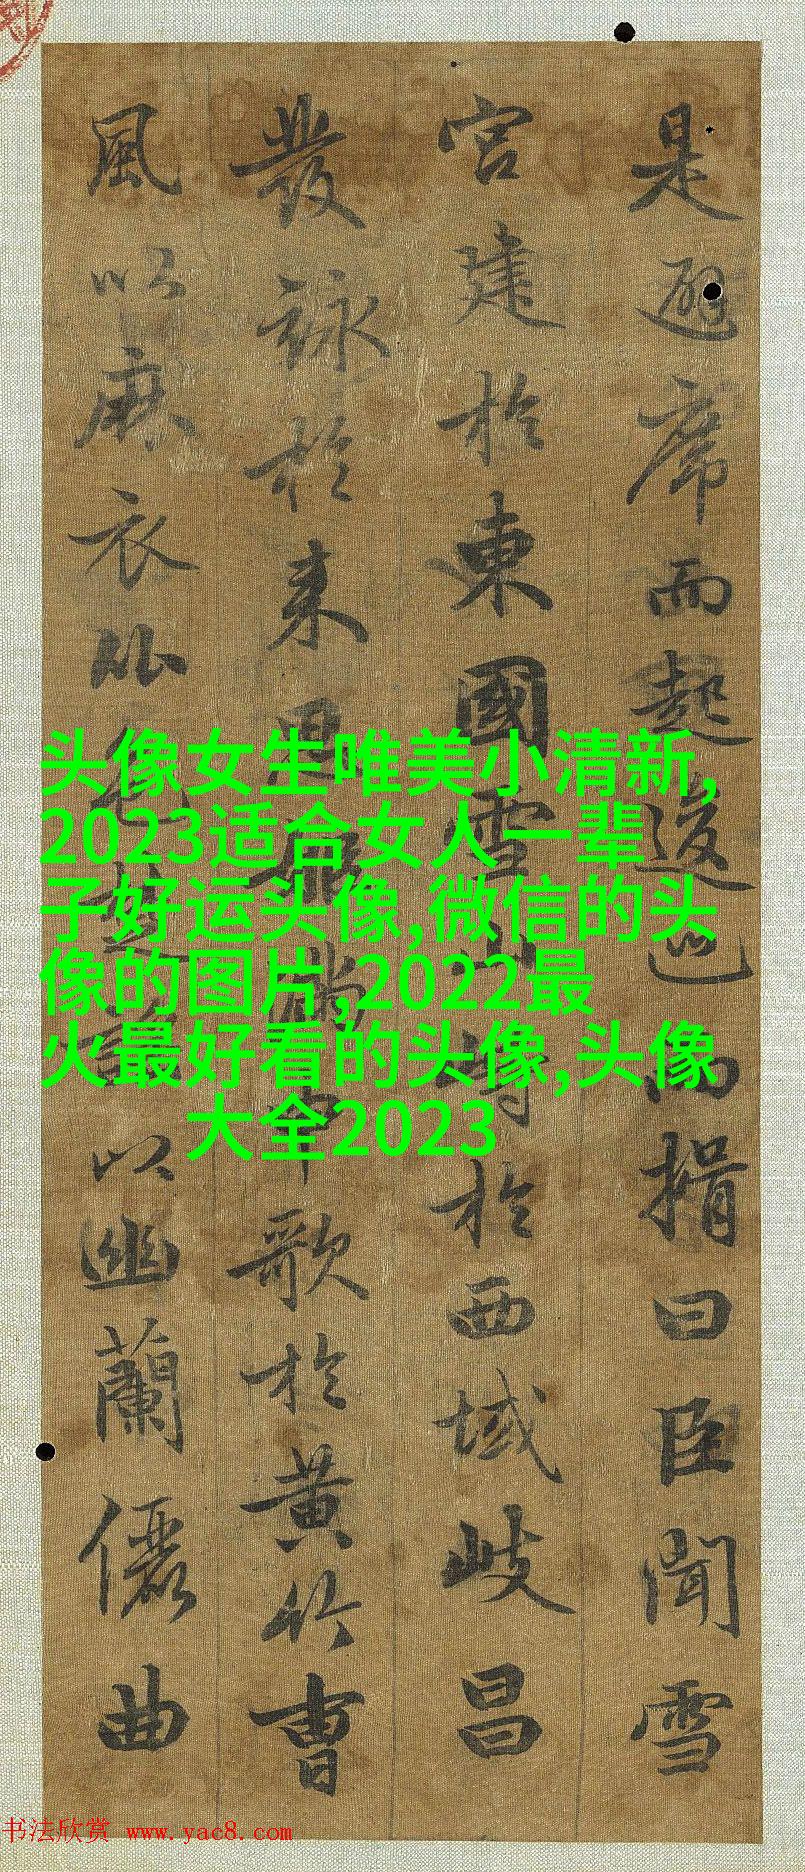 是避席而起逡巡而揖曰臣聞雪
宮建於東國雪山峙於西域岐昌
發詠於来思姬滿申歌於黄竹曹
風以麻衣比色楚謠以幽蘭儷曲
头像女生唯美小清新,
2023适合女人一辈
子好运头像,微信的头
像的图片,2022最
火最好看的头像,头像
大全2023
书法欣赏 www.yac8.com